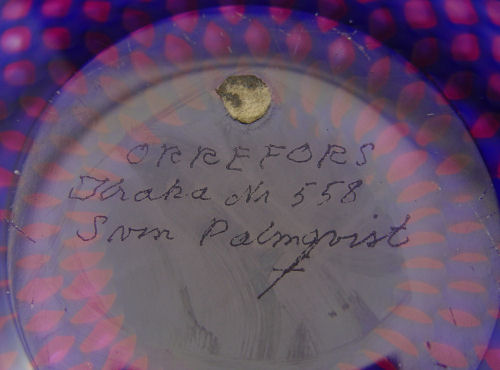 ORREFORS
Kraka Nr 558
Sven Palmqvist